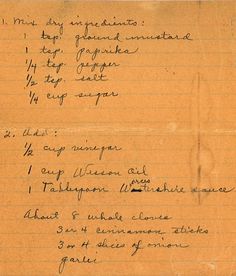 1. Mix dry ingredients:
1 tsp. ground mustard
1 tsp. paprika
1/4 tsp. pepper
1/2 tsp. salt
1/4 cup sugar
2. Add:
1/2 cup vinegar
1 cup Wesson Oil
1 Tablespoon Worcestershire sauce
About 8 whole cloves
3 or 4 cinnamon sticks
3 or 4 slices of onion
garlic